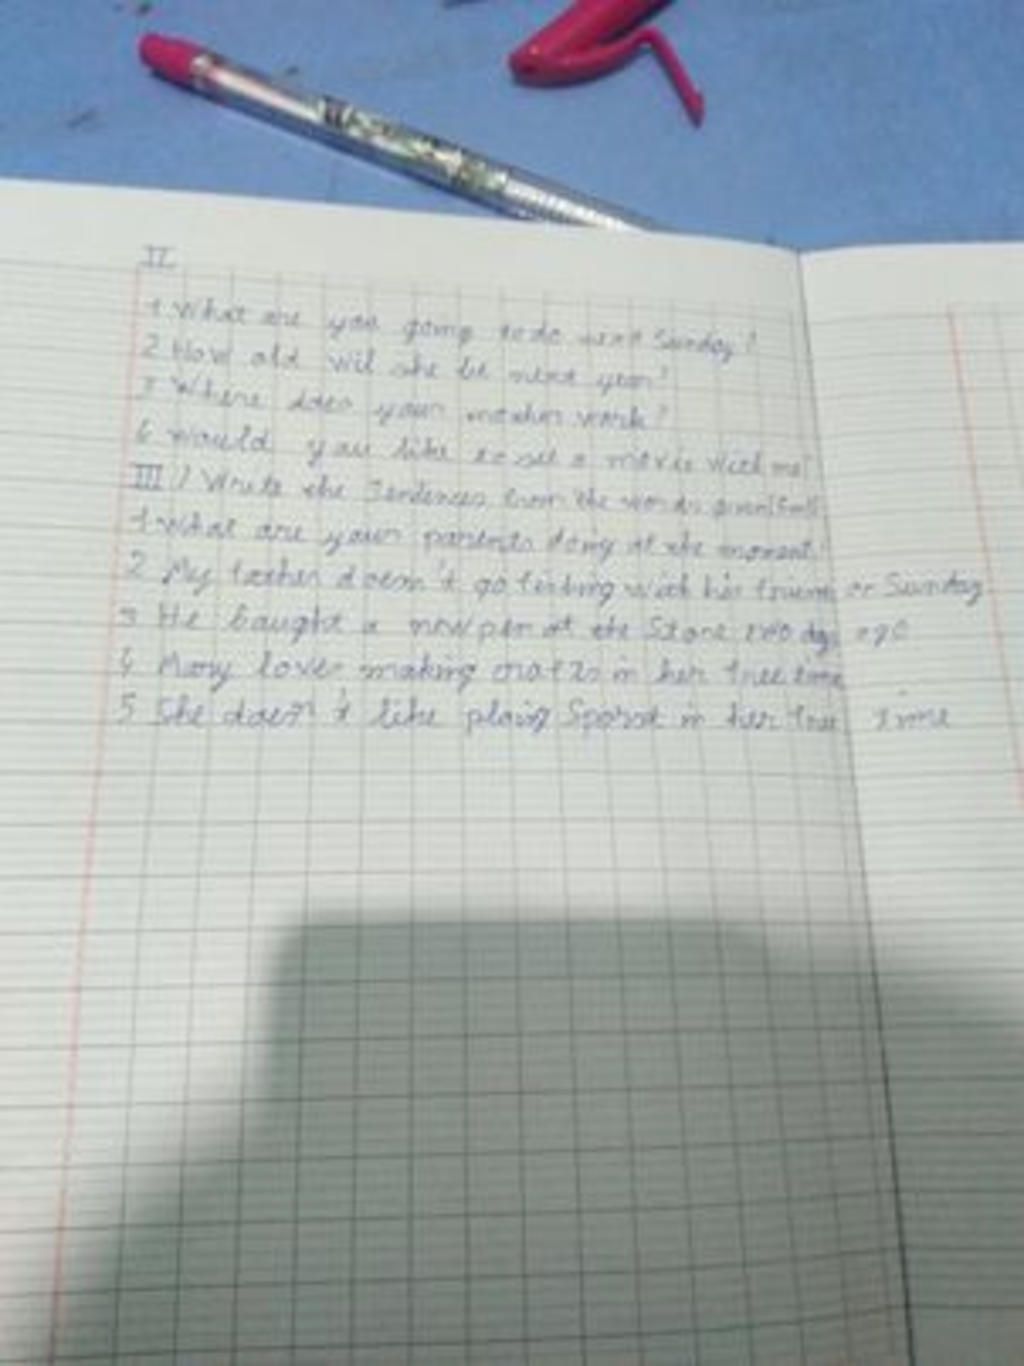 II
1 What are you going to do next Sunday?
2 How old wil she be next year?
3 Where does your mother work?
4 Would you like to see a movie with me?
III) Write the Sentences from the words given
1 What are your parents doing at the moment?
2 My father doesn't go fishing with his friend on Sunday
3 He bought a new pen at the Store two days ago
4 Mary loves making crafts in her free time
5 She doesn't like plaing Sporst in her free time